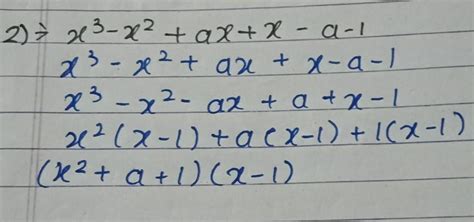 2)⇒ x³-x²+ax+x-a-1
x³-x²+ax+x-a-1
x³-x²-ax+a+x-1
x²(x-1)+a(x-1)+1(x-1)
(x²+a+1)(x-1)